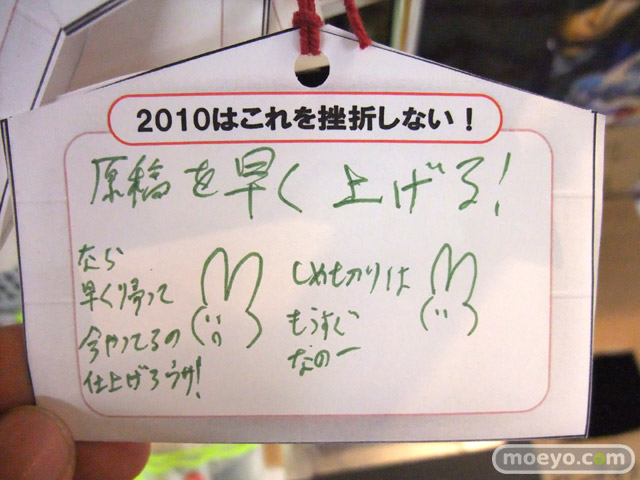 2010はこれを挫折しない！
原稿を早く上げる!
なら
早く帰って
今やってるの
仕上げろうサ!
しめ切りは
もうすぐ
なのー
moeyo.com